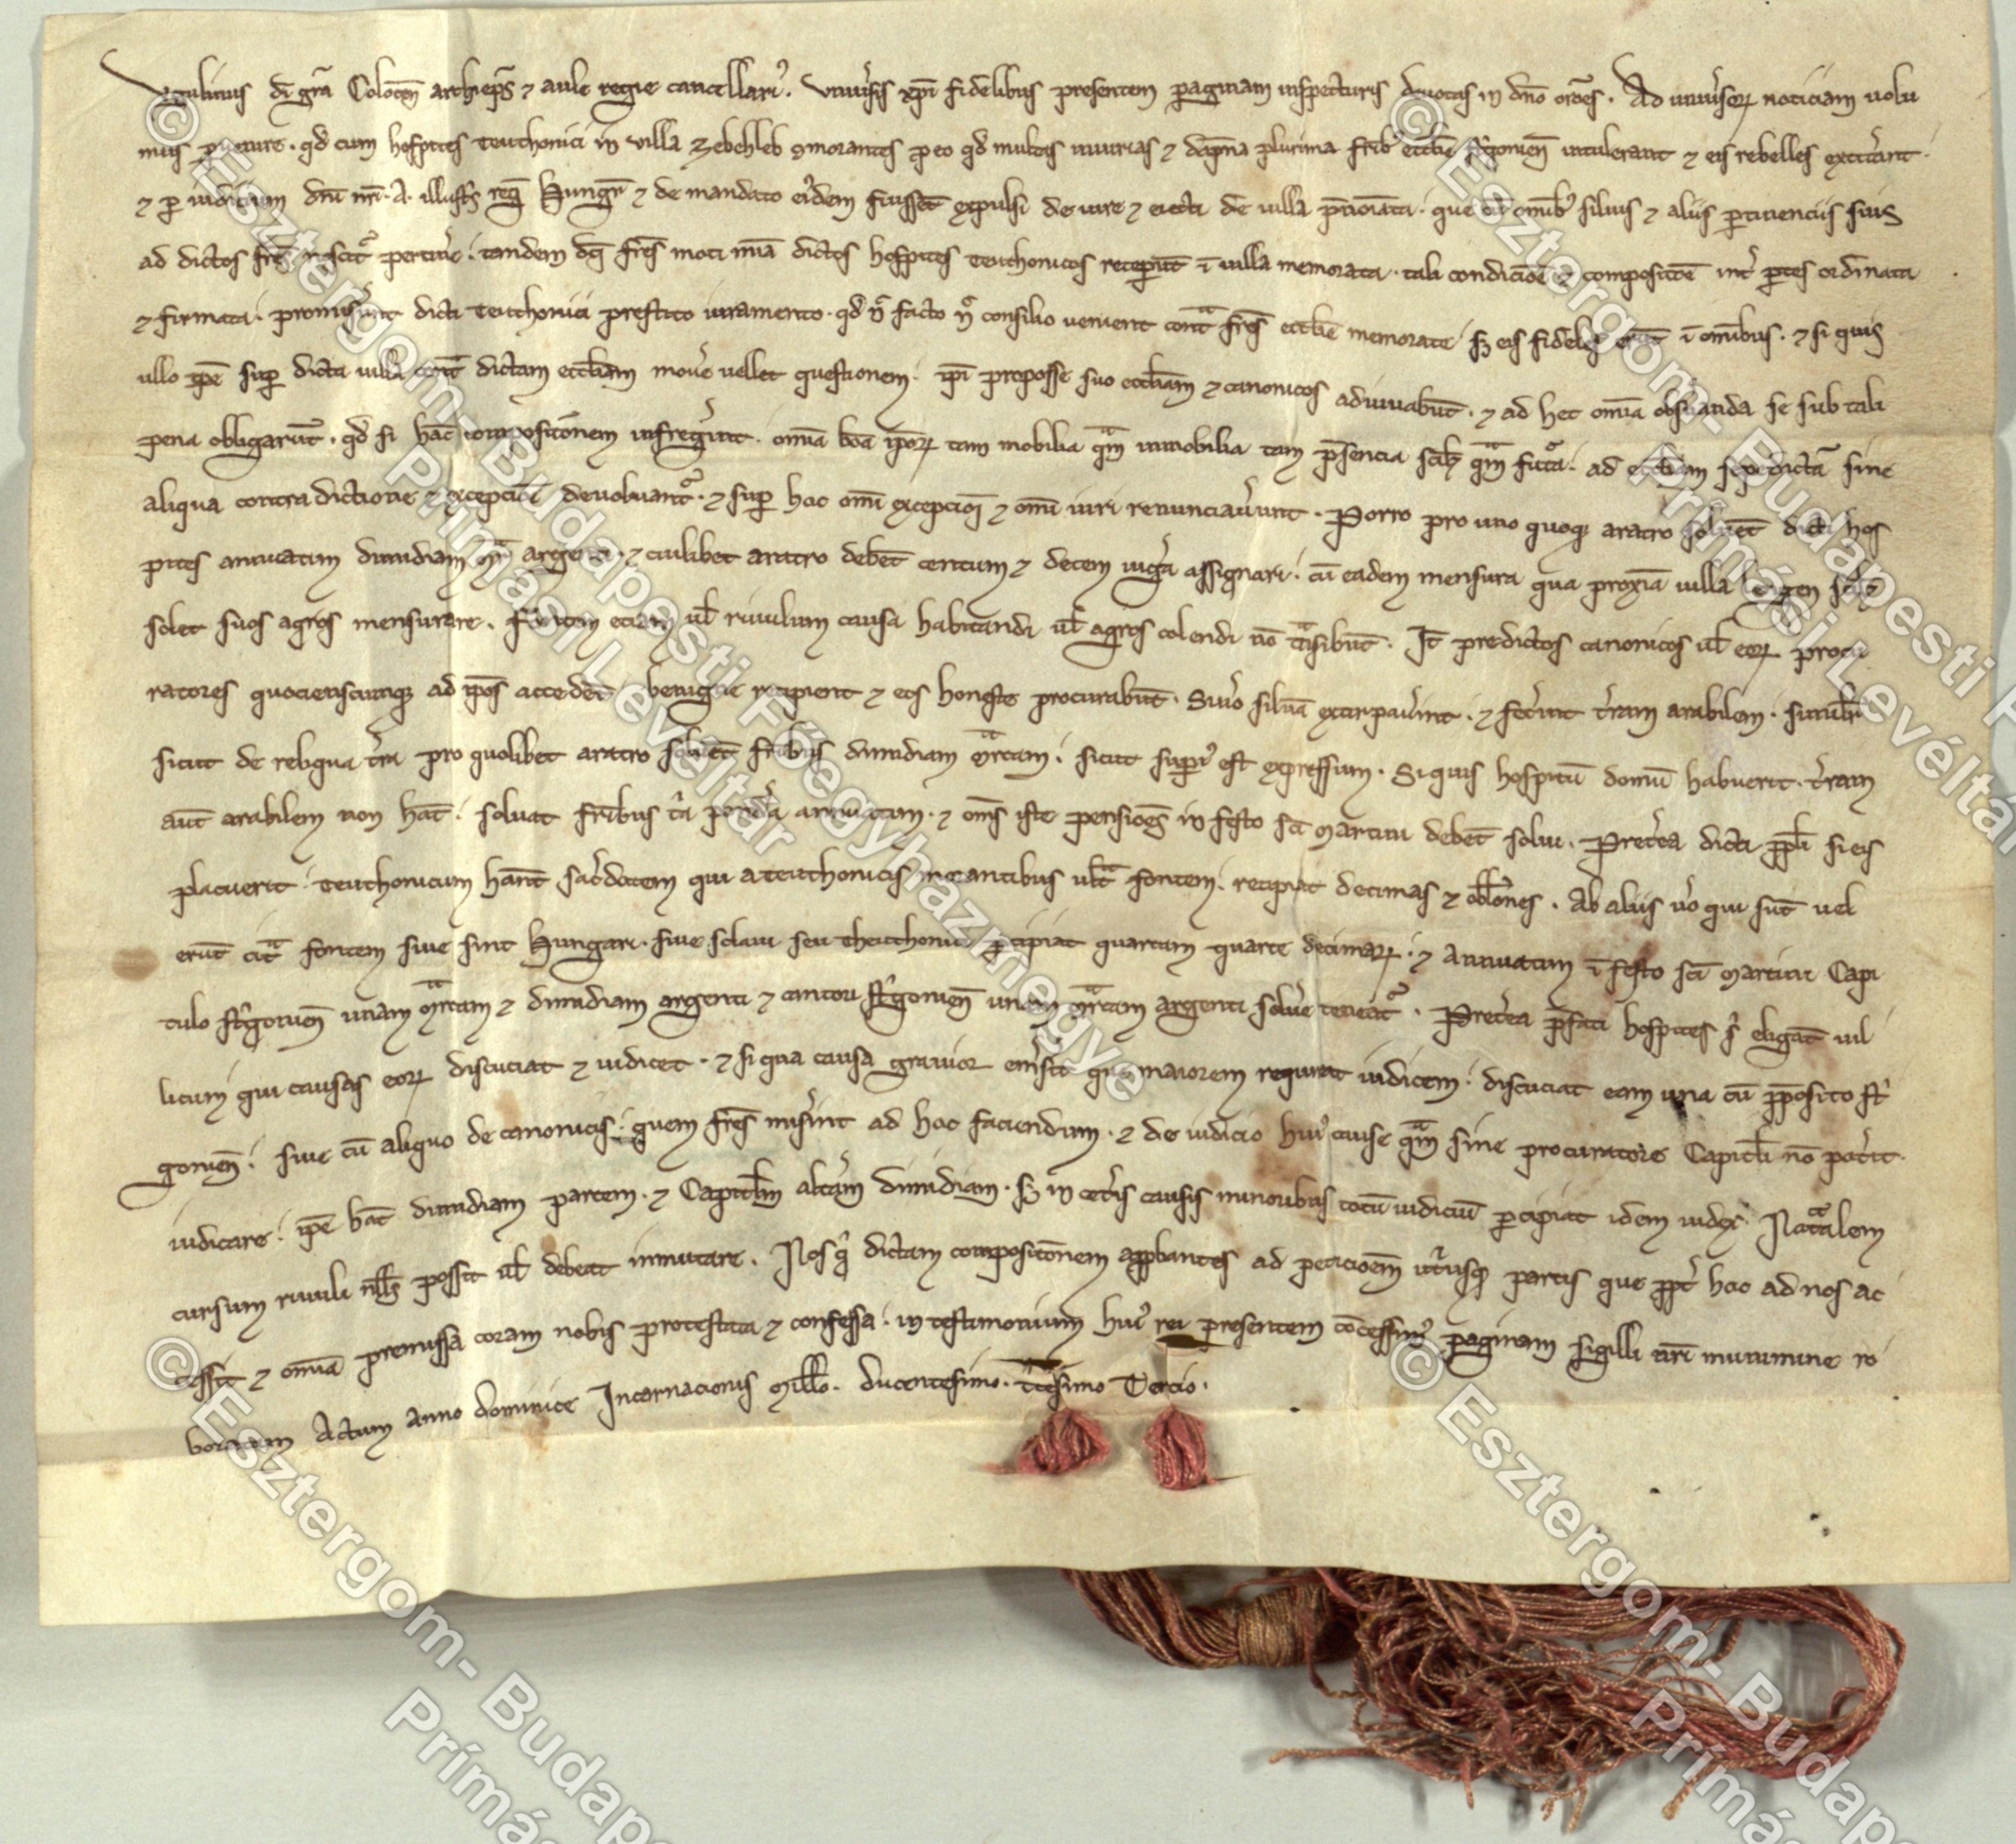 Vgulinus di gra Colocen archieps ⁊ aule regie cancellari᾽. Vniuersis xpi fidelibus presentem paginam inspecturis deuotas in dno orões. Ad uniusoꝝ noticiam uolu
mus peruenire. qd cum hospites teuthonici in villa Zebehleb ꝯmorantes pro eo qd multas iniurias ⁊ dapna plurima frib᾽ ecctie strigonien intulerant ⁊ eis rebelles extiterint.
⁊ per iudicium dni nri. A. illustris reg Hungar ⁊ de mandato eiᵈdem fuisset expulsi de iure ⁊ eiecti de uilla prenoiata. que cu omib᾽ siluis ⁊ aliis pertinenciis suis
ad dictos fres noscit᾽ pertinere. tandem dcti fres moti mia dictos hospites teuthonicos receperut i uilla memorata. tali condicioe ⁊ compositoe inter partes ordinata
⁊ firmata. promiserunt dicti teuthonici prestito iuramento. qd no facto no consilio uenient contra fres ecctie memorate. sꝫ eis fideles erut i omibus. ⁊ si quis
ullo tpe super dicta uilla contra dictam ecctiam mouere uellet questionem. ipi proposse suo ecctiam ⁊ canonicos adiuuabut. ⁊ ad hec omia obseruanda se sub tali
pena obligarut. qd si hac compositonem infregerint. omia bona ipoꝝ tam mobilia qm inmobilia tam presencia scilicꝫ qm futura. ad ecctiam sepedicta sine
aliqua contradictione ⁊ excepcioe deuoluant᾽. ⁊ super hoc omi excepcioi ⁊ omi iuri renunciauerunt. Porro pro uno quoqꝫ aratro soluet dicti hos
pites annuatim dimidiam mrcam argenti. ⁊ cuilibet aratro debet centum ⁊ decem iugera assignari. cu eadem mensura qua proxima uilla
solet suos agros mensurare. Fontem eciam ul riuulum causa habitandi ul agros colendi no transibut. It predictos canonicos ul eoꝝ procu
ratores quocienscunqꝫ ad ipos accedet benigne recipient ⁊ eos honeste procurabut. Siuero silua extirpauerint. ⁊ fecerint terram arabilem. similiter
sicut de reliqua terra pro quolibet aratro soluet fribus dimidiam mrcam. sicut superi᾽ est expressum. Si quis hospitu domu habuerit. terram
aut arabilem non hat. soluat fribus tria pondera annuatim. ⁊ oms iste pensioes in festo sci Martini debet solui. Preterea dicti ppli si eis
placuerit teuthonicum hant sacerdotem qui a teuthonicis morantibus ultra fontem. recipiat decimas ⁊ oblones. Ab aliis uero qui sut uel
erut citra fontem siue sint Hungari. siue sclaui seu theuthonici percipiat quartam quarte decimaꝝ. ⁊ annuatim i festo sci Martini Capi
tulo strigonien unam mrcam ⁊ dimidiam argenti ⁊ cantori strigonien unam mrcam argenti soluere teneat᾽. Preterea prefati hospites si eligat uil
licum qui causas eoꝝ discuciat ⁊ iudicet. ⁊ si qua causa grauior emerserit que maiorem requirat iudicem. discuciat eam una cu pposito stri
gonien. siue cu aliquo de canonicis. quem fres miserint ad hoc faciendum. ⁊ de iudicio hui᾽ cause qm sine procuratore Capitti no poterit.
iudicare. ipe hat dimidiam partem. ⁊ Capittm alteram dimidiam. sꝫ in ceteris causis minoribus totu iudiciu percipiat idem iudex. Naturalem
cursum riuuli nullꝰ possit ul debeat inmutare. Nos g dictam compositonem approbantes ad peticioem utriusqꝫ partis que ppter hoc ad nos ac
cessit ⁊ omia premissa coram nobis protestata ⁊ confessa. in testimonium hui᾽ rei presentem concessim᾽ paginam sigilli nri munimine ro
boratam Actum anno dominice Incarnacionis Millo. ducentesimo. tricesimo Tercio.
© Esztergom-Budapesti Főegyházmegye
Prímási Levéltár
© Esztergom-Budapesti
Prímási Levéltár
© Esztergom-Budap
Prímás
© Esztergom-Budap
Prímás